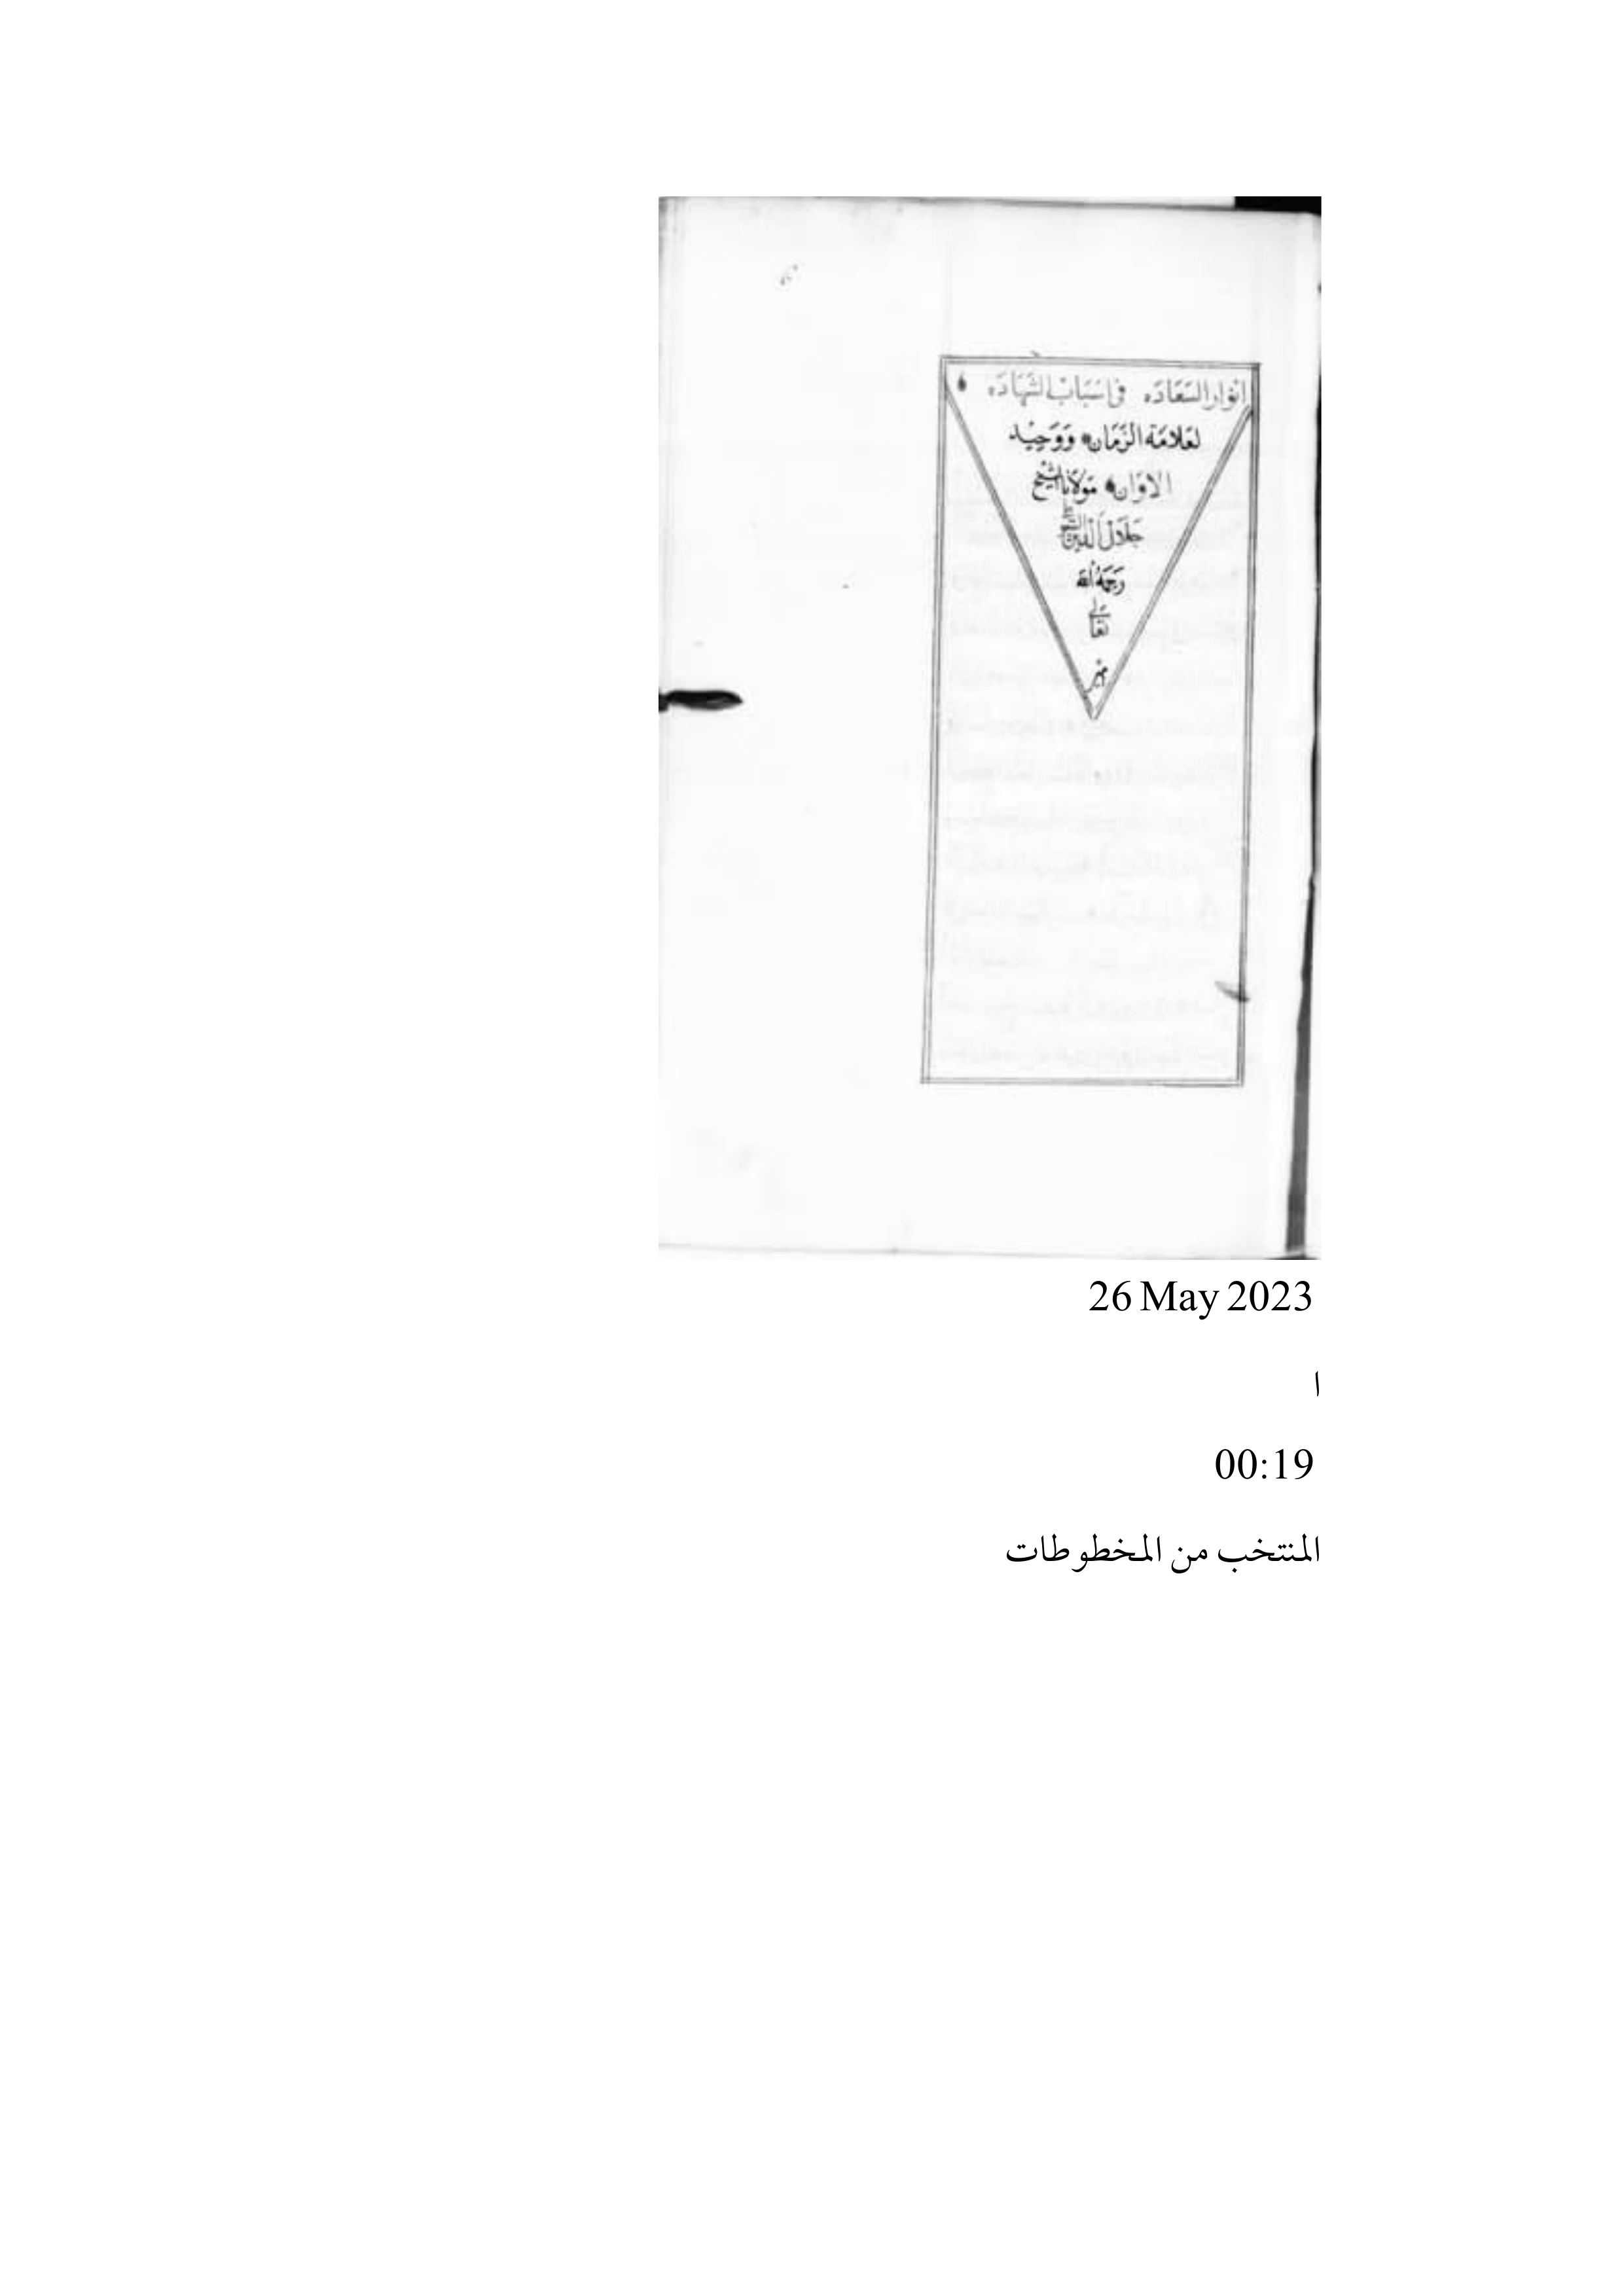 انوار السَّعَادَه في اسْبَاب الشَّهَادَه
لعَلامَة الزَّمَان وَوَحِيْد
الاوَان مَولانَا الشيخ
جَلَال الدين
رَحمَهُ الله
تعَالى
26 May 2023
ا
00:19
المنتخب من المخطوطات